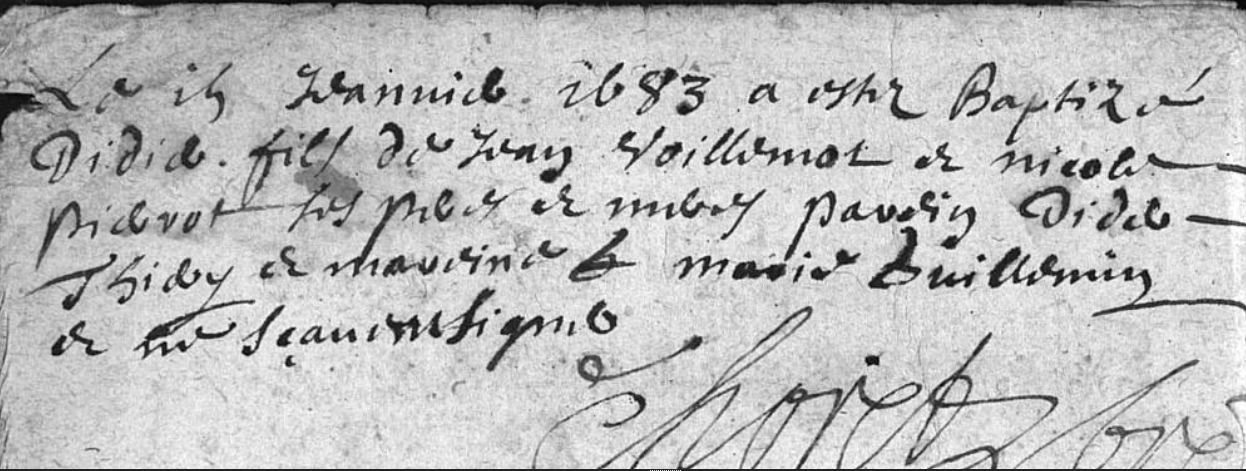 Le 15 Jeanvier 1683 a estez Baptizé
Didier fils de Jean Voillemot et nicole
pierrot ses peres et meres parein Didier
Thiery et mareine marie Guillemin
et ne sçavent signer